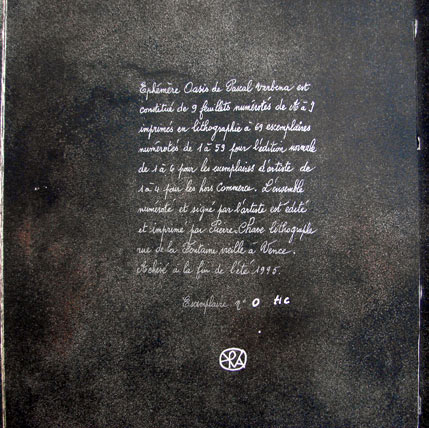 Ephémère Oasis de Pascal Verbena est
constitué de 9 feuillets numérotés de A à I
imprimés en lithographie à 69 exemplaires
numérotés de 1 à 59 pour l'édition normale
de 1 à 6 pour les exemplaires d'artiste de
1 à 4 pour les hors commerce. L'ensemble
numéroté et signé par l'artiste est édité
et imprimé par Pierre Chave lithographe
rue de la Fontaine vieille à Vence.
Achevé à la fin de l'été 1995.
Exemplaire n° 0 HC